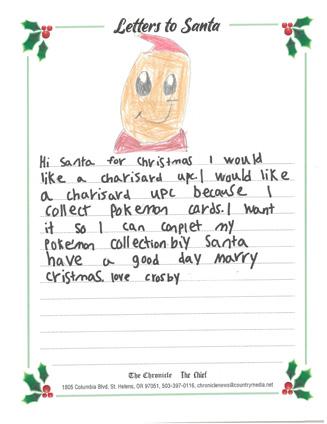 Letters to Santa
Hi Santa for christmas I would
like a charisard upc. I would like
a charisard upc because I
collect Pokemon cards. I want
it so I can conplet my
Pokemon collection. biy Santa
have a good day marry
cristmas. love crosby
The Chronicle The Chief
1805 Columbia Blvd. St. Helens, OR 97051, 503-397-0116, chroniclenews@countrymedia.net